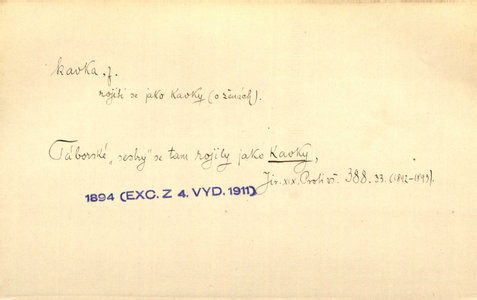 kavka, f.
rojiti se jako kavky (o ženách).
Táborské „sestry“ se tam rojily jako kavky,
Jir. XIX. Proti vš. 388. 33. (1892-1893).
1894 (EXC. Z 4. VYD. 1911)